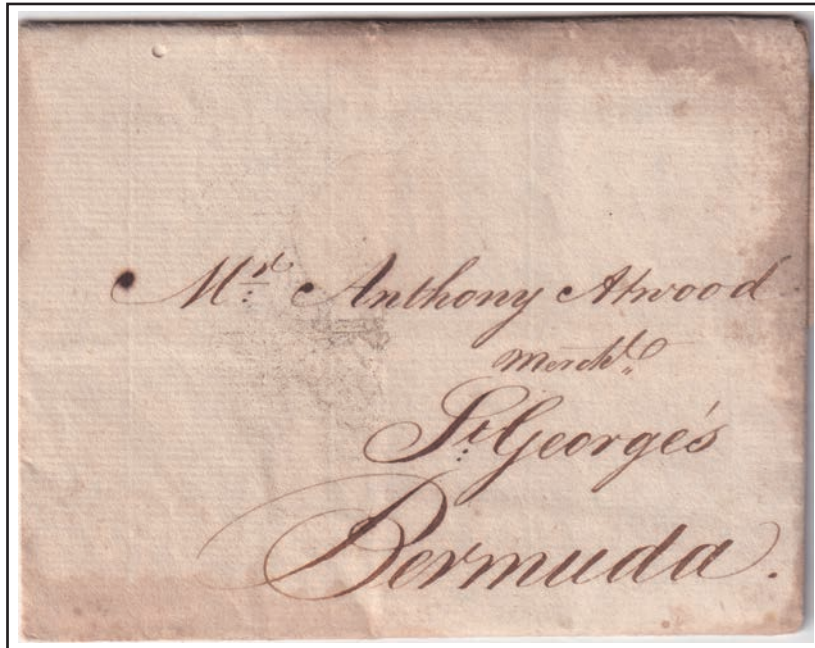 Mr. Anthony Atwood
Mercht.
St. George's
Bermuda.